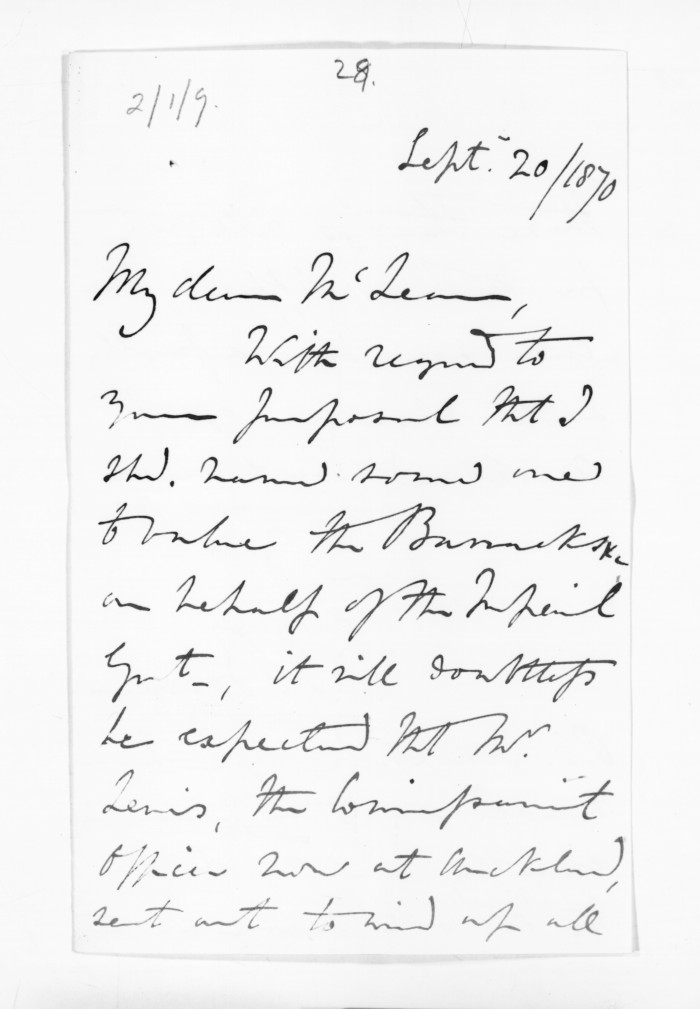 28.
2/1/9.
Septr. 20/1870
My dear McLean,
With regard to
your proposal that I
shd. name some one
to value the Barracks &c
on behalf of the Imperial
Govt., it will doubtless
be expected that Mr.
Lewis, the Commissariat
Officer now at Auckland,
sent out to wind up all